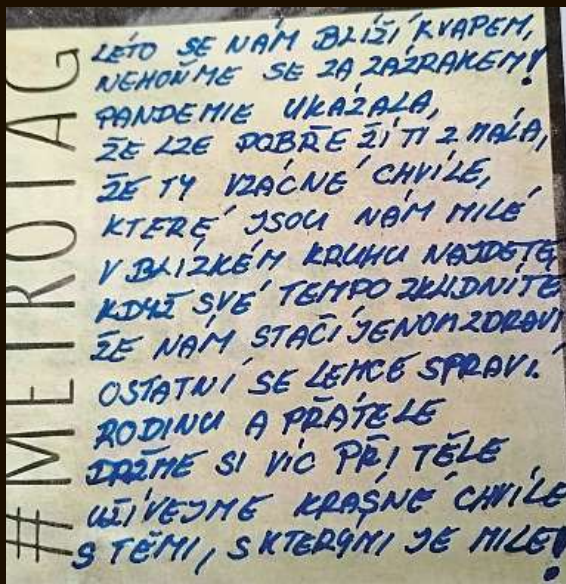 #METROTAG
LÉTO SE NÁM BLÍŽÍ KVAPEM,
NEHOŇME SE ZA ZÁZRAKEM!
PANDEMIE UKÁZALA,
ŽE LZE DOBŘE ŽÍTI Z MÁLA,
ŽE TY VZÁCNÉ CHVÍLE,
KTERÉ JSOU NÁM MILÉ
V BLÍZKÉM KRUHU NAJDETE
KDYŽ SVÉ TEMPO ZKLIDNÍTE
ŽE NÁM STAČÍ JENOM ZDRAVÍ
OSTATNÍ SE LEHCE SPRAVÍ.
RODINU A PŘÁTELE
DRŽME SI VÍC PŘI TĚLE
UŽÍVEJME KRÁSNÉ CHVÍLE
S TĚMI, S KTERÝMI JE MILE!